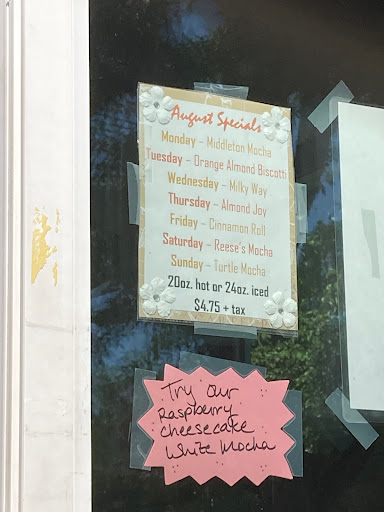 August Specials
Monday – Middleton Mocha
Tuesday – Orange Almond Biscotti
Wednesday – Milky Way
Thursday – Almond Joy
Friday – Cinnamon Roll
Saturday – Reese's Mocha
Sunday – Turtle Mocha
20oz. hot or 24oz. iced
$4.75 + tax
Try our
Raspberry
cheesecake
White Mocha